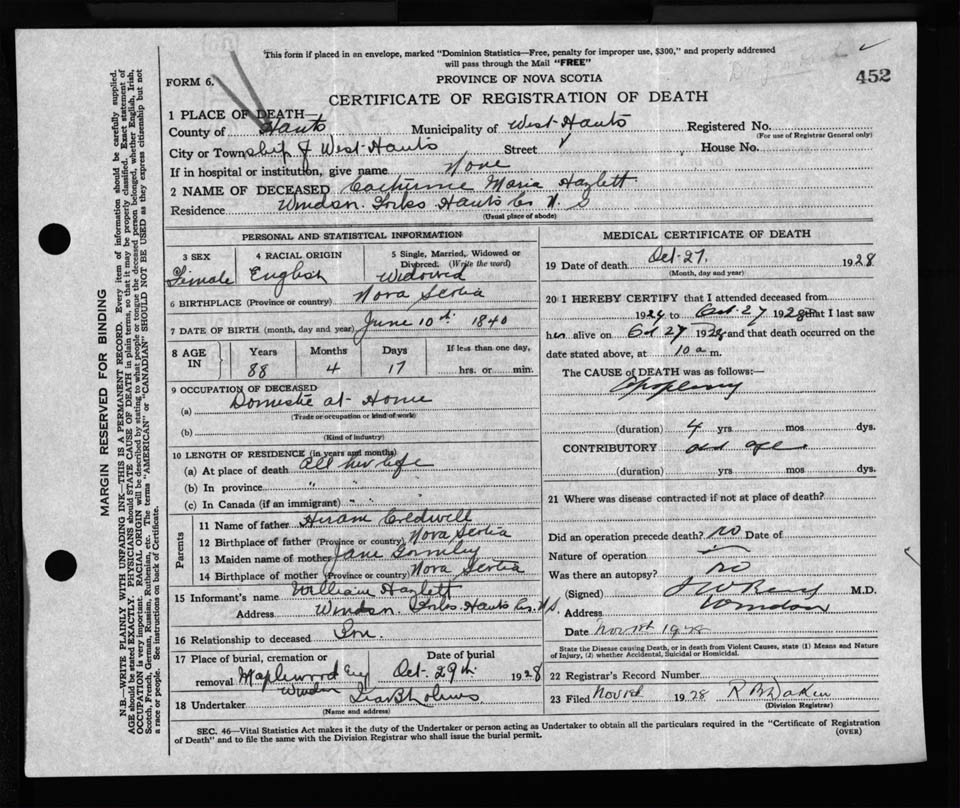 This form if placed in an envelope, marked "Dominion Statistics—Free, penalty for improper use, $300," and properly addressed
will pass through the Mail "FREE"
FORM 6.
PROVINCE OF NOVA SCOTIA
452
CERTIFICATE OF REGISTRATION OF DEATH
1 PLACE OF DEATH—
County of Hants Municipality of West Hants Registered No.
(For use of Registrar General only)
City or Township of West Hants Street House No.
If in hospital or institution, give name None
2 NAME OF DECEASED Catherine Maria Hazlett
Residence Windsor Forks Hants Co N. S
(Usual place of abode)
PERSONAL AND STATISTICAL INFORMATION
3 SEX 4 RACIAL ORIGIN 5 Single, Married, Widowed or
Divorced. (Write the word)
Female English Widowed
6 BIRTHPLACE (Province or country) Nova Scotia
7 DATE OF BIRTH (month, day and year) June 10th 1840
8 AGE IN Years Months Days If less than one day,
88 4 17 hrs. or min.
9 OCCUPATION OF DECEASED
(a) Domestic at Home
(Trade or occupation or kind of work)
(b)
(Kind of industry)
10 LENGTH OF RESIDENCE (in years and months)
(a) At place of death all her life
(b) In province " "
(c) In Canada (if an immigrant) " "
Parents
11 Name of father Hiram Credwell
12 Birthplace of father (Province or country) Nova Scotia
13 Maiden name of mother Jane
14 Birthplace of mother (Province or country) Nova Scotia
15 Informant's name William Hazlett
Address Windsor Forks Hants Co. N.S.
16 Relationship to deceased Son
17 Place of burial, cremation or Date of burial
removal Maplewood Cy Windsor Oct 29th 1928
18 Undertaker
(Name and address)
MEDICAL CERTIFICATE OF DEATH
19 Date of death Oct-27, 1928
(Month, day and year)
20 I HEREBY CERTIFY that I attended deceased from
192 to Oct 27 1928 that I last saw
her alive on Oct 27 1928 and that death occurred on the
date stated above, at 10 a m.
The CAUSE OF DEATH was as follows:—
(duration) 4 yrs mos dys.
CONTRIBUTORY old age
(duration) yrs mos dys.
21 Where was disease contracted if not at place of death?
Did an operation precede death? no Date of
Nature of operation
Was there an autopsy? no
(Signed) M.D.
Address Windsor
Date Nov 1928
State the Disease causing Death, or in death from Violent Causes, state (1) Means and
Nature of Injury, (2) whether Accidental, Suicidal or Homicidal.
22 Registrar's Record Number
23 Filed Nov 1928
(Division Registrar)
SEC. 46—Vital Statistics Act makes it the duty of the Undertaker or person acting as Undertaker to obtain all the particulars required in the "Certificate of Registration
of Death" and to file the same with the Division Registrar who shall issue the burial permit.
(OVER)
MARGIN RESERVED FOR BINDING
N.B.—WRITE PLAINLY WITH UNFADING INK—THIS IS A PERMANENT RECORD. Every item of information should be carefully supplied.
AGE should be stated EXACTLY. PHYSICIANS should STATE CAUSE OF DEATH in plain terms, so that it may be properly classified. Exact statement of
OCCUPATION is very important. RACIAL ORIGIN will be described by stating to what people or tongue the deceased person belonged, whether English, Irish,
Scotch, French, German, Russian, Ruthenian, etc. The terms "AMERICAN" or "CANADIAN" SHOULD NOT BE USED as they express citizenship but not
a race or people. See instructions on back of Certificate.